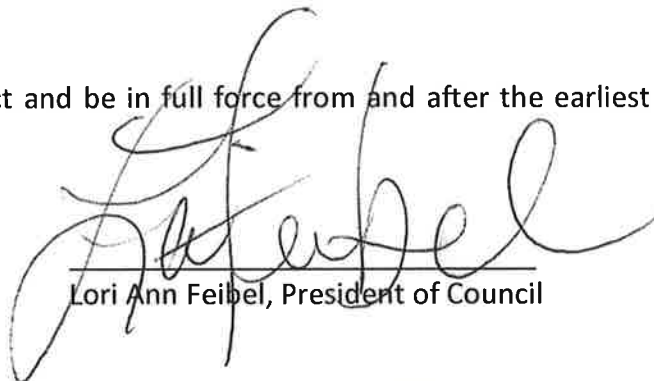 ct and be in full force from and after the earliest
Lori Ann Feibel, President of Council